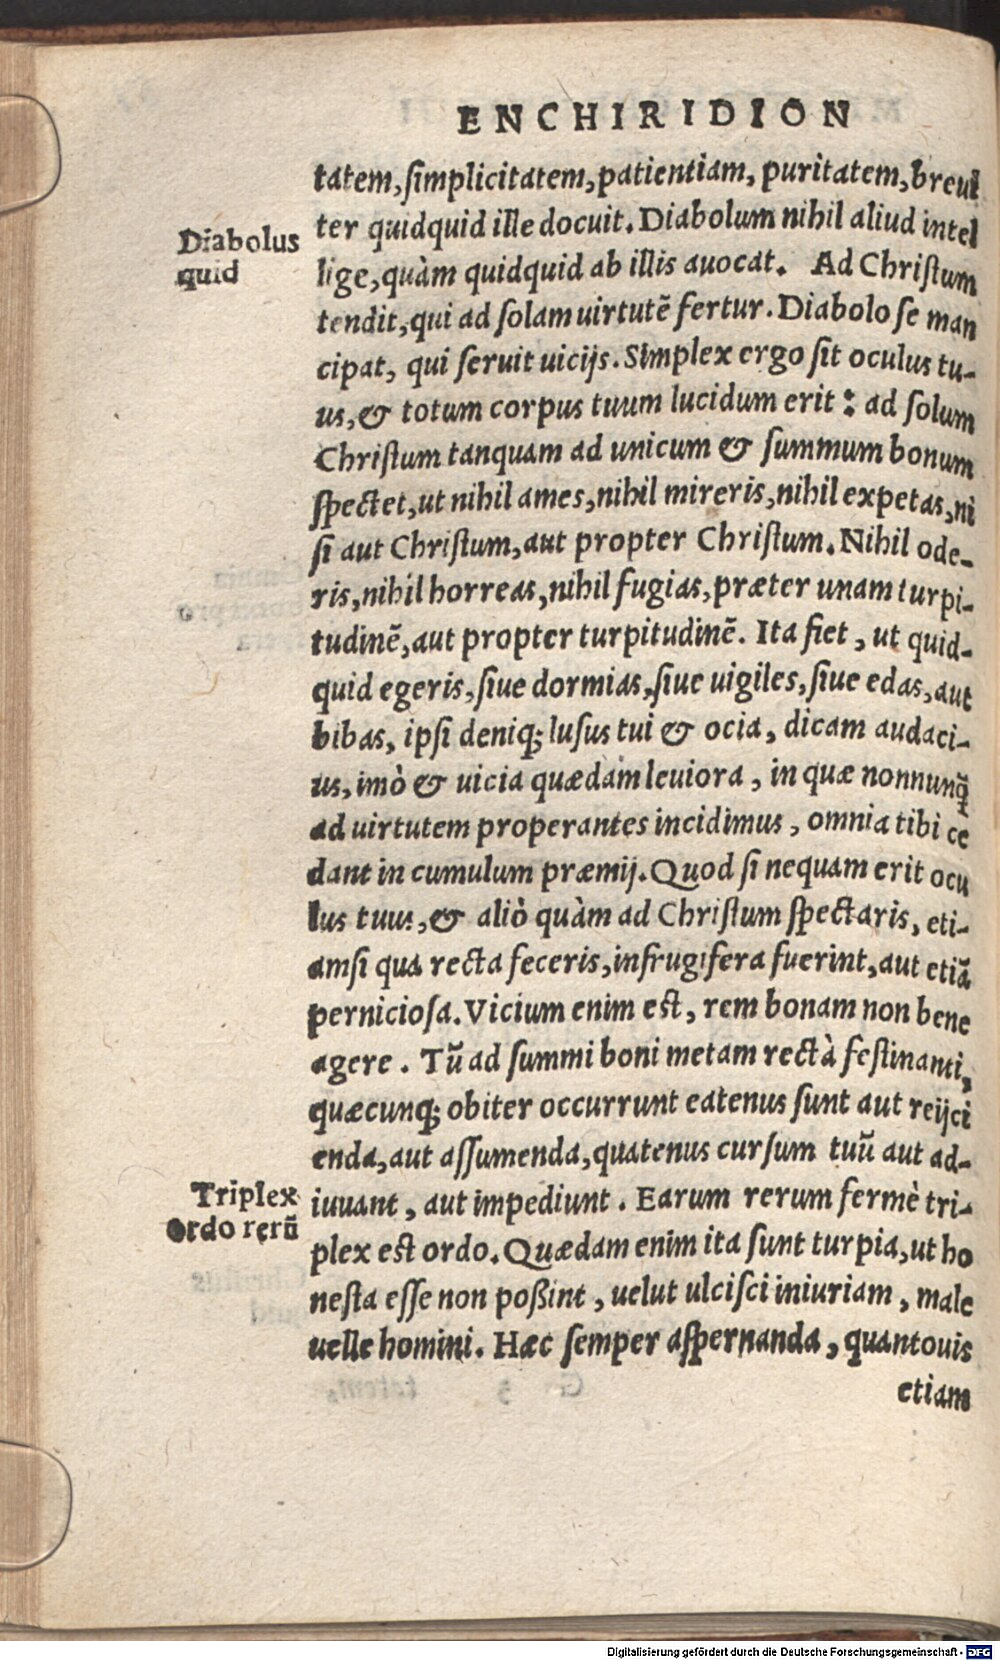 ENCHIRIDION
tatem, ſimplicitatem, patientiam, puritatem, breui
Diabolus
quid
ter quidquid ille docuit. Diabolum nihil aliud intel
lige, quàm quidquid ab illis auocat. Ad Chriſtum
tendit, qui ad ſolam uirtutẽ fertur. Diabolo ſe man
cipat, qui ſeruit uicijs. Simplex ergo ſit oculus tu-
us, & totum corpus tuum lucidum erit : ad ſolum
Chriſtum tanquam ad unicum & ſummum bonum
ſpectet, ut nihil ames, nihil mireris, nihil expetas, ni
ſi aut Chriſtum, aut propter Chriſtum. Nihil ode-
ris, nihil horreas, nihil fugias, præter unam turpi-
tudinẽ, aut propter turpitudinẽ. Ita fiet, ut quid-
quid egeris, ſiue dormias, ſiue uigiles, ſiue edas, aut
bibas, ipſi deniq; luſus tui & ocia, dicam audaci-
us, imò & uicia quædam leuiora, in quæ nonnunq̃
ad uirtutem properantes incidimus, omnia tibi ce
dant in cumulum præmij. Quod ſi nequam erit ocu
lus tuus, & aliò quàm ad Chriſtum ſpectaris, eti-
amſi qua recta feceris, infrugifera fuerint, aut etiã
pernicioſa. Vicium enim eſt, rem bonam non bene
agere. Tũ ad ſummi boni metam rectà feſtinanti,
quæcunq; obiter occurrunt eatenus ſunt aut reijci
enda, aut aſſumenda, quatenus curſum tuũ aut ad-
Triplex
ordo rerũ
iuuant, aut impediunt. Earum rerum fermè tri-
plex eſt ordo. Quædam enim ita ſunt turpia, ut ho
neſta eſſe non poßint, uelut ulciſci iniuriam, male
uelle homini. Hæc ſemper aſpernanda, quantouis
etiam
Digitalisierung gefördert durch die Deutsche Forschungsgemeinschaft - DFG